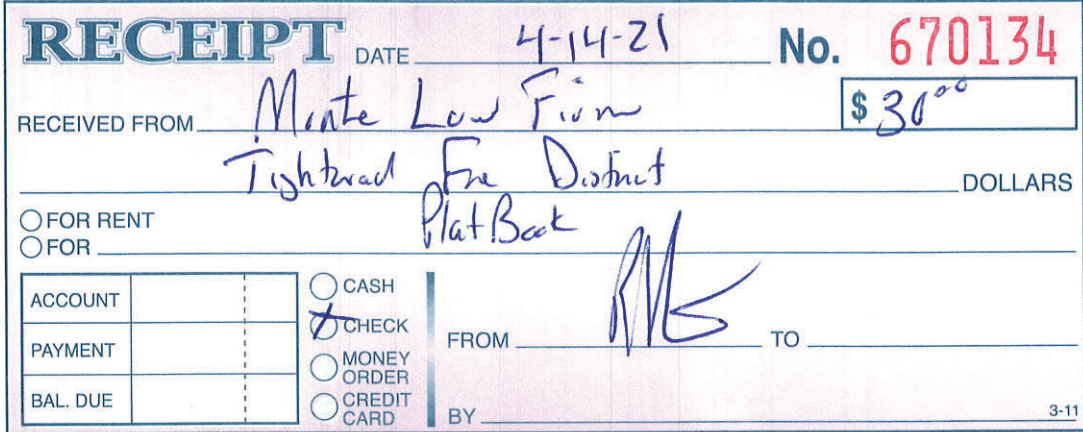 RECEIPT DATE 4-14-21 No. 670134
RECEIVED FROM Monte Law Firm $ 30⁰⁰
Tightwad Fire District DOLLARS
FOR RENT
Plat Book
FOR
ACCOUNT
PAYMENT
BAL. DUE
CASH
CHECK
MONEY ORDER
CREDIT CARD
FROM TO
BY
3-11